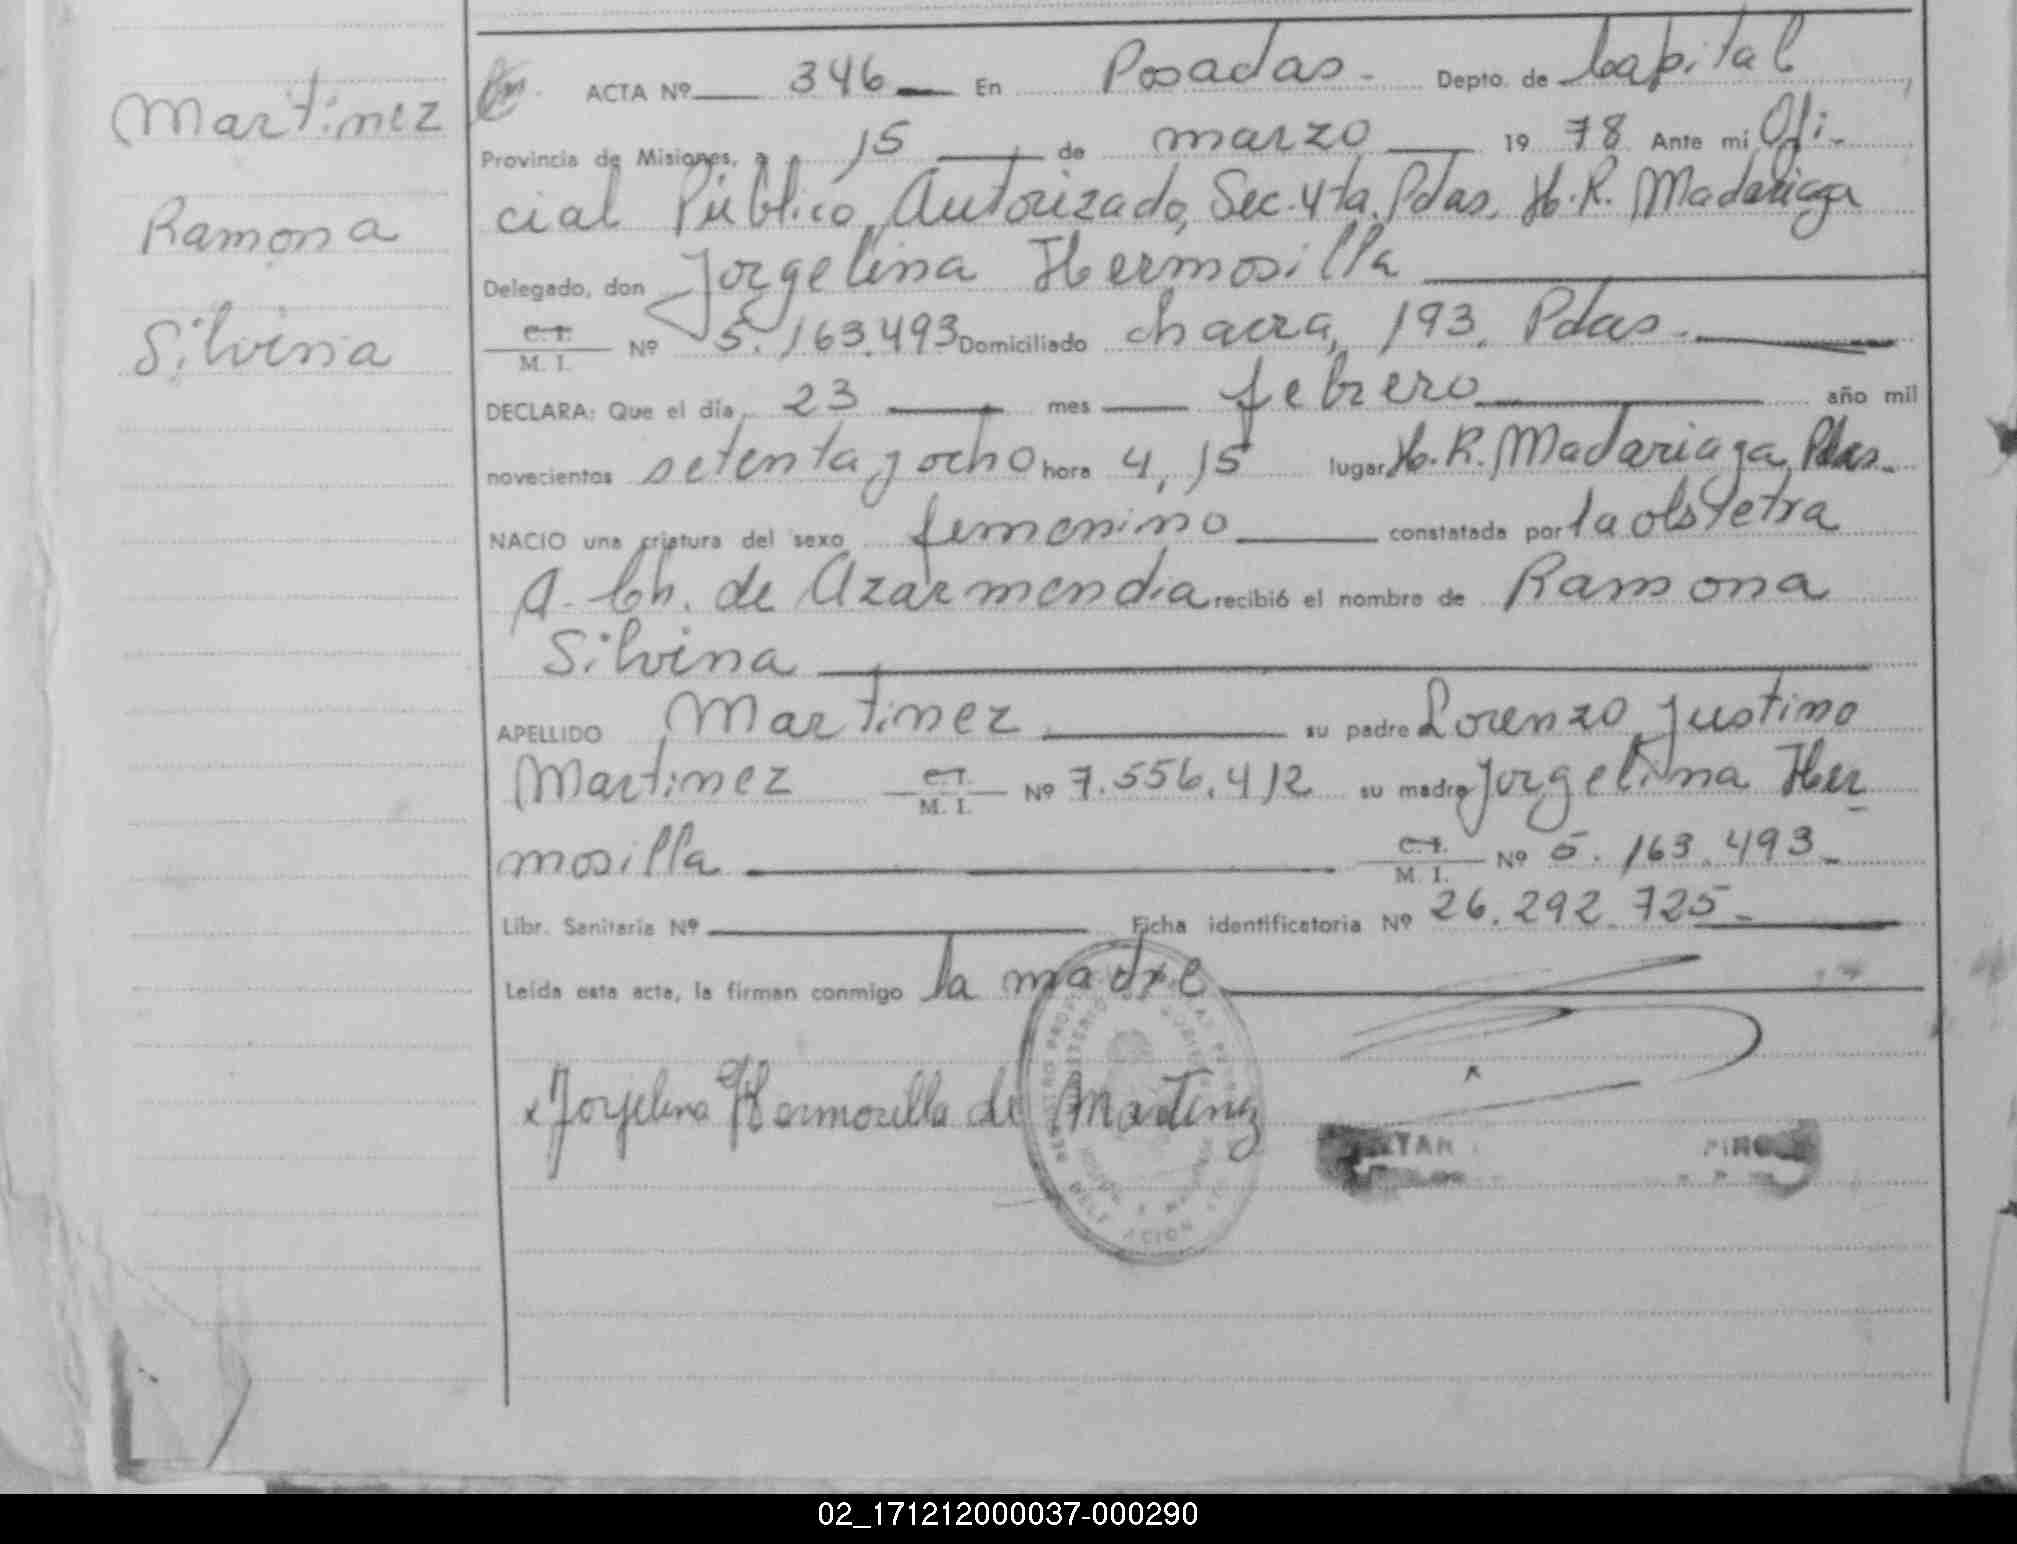 Martinez
Ramona
Silvina
ACTA Nº 346 En Posadas. Depto. de Capital
Provincia de Misiones, a 15 de marzo 1978 Ante mi Ofi-
cial Público Autorizado, Sec. 4ta. Pdas. H. R. Madariaga
Delegado, don Jorgelina Hermosilla
C. I.
M. I. Nº 5.163.493 Domiciliado chacra, 193. Pdas.
DECLARA: Que el día, 23 mes febrero año mil
novecientos setenta y ocho hora 4,15 lugar H. R. Madariaga Pdas.
NACIO una criatura del sexo femenino constatada por la obstetra
A. Ch. de Azarmendia recibió el nombre de Ramona
Silvina
APELLIDO Martinez su padre Lorenzo Justino
Martinez C. I. M. I. Nº 7.556.412 su madre Jorgelina Her
mosilla C. I. M. I. Nº 5.163.493
Libr. Sanitaria Nº Ficha identificatoria Nº 26.292.725
Leída esta acta, la firman conmigo la madre
x Jorjelina Hermosilla de Martinez
02_171212000037-000290